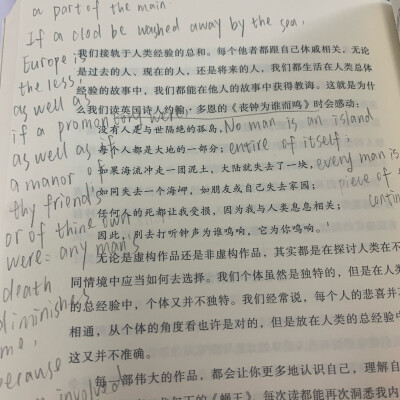 a part of the main.
If a clod be washed away by the sea,
Europe is
the less,
as well as
if a promontory were,
as well as if
a manor of
thy friend's
or of thine own
were: any man's
death
diminishes
me,
because
involved
No man is an island
entire of itself;
every man is
piece of
我们接轨于人类经验的总和。每个他者都跟自己休戚相关，无论
是过去的人、现在的人，还是将来的人，我们都生活在人类总体
经验的故事中，我们都能在他人的故事中获得教诲。这就是为什
么我们读英国诗人约翰·多恩的《丧钟为谁而鸣》时会感动：
没有人是与世隔绝的孤岛，
每个人都是大地的一部分；
如果海流冲走一团泥土，大陆就失去了一块，
如同失去一个海岬，如朋友或自己失去家园；
任何人的死都让我受损，因为我与人类息息相关；
因此，别去打听钟声为谁鸣响，它为你鸣响。
无论是虚构作品还是非虚构作品，其实都是在探讨人类在不
同情境中应当如何去选择。我们个体虽然是独特的，但是在人类
的总经验中，个体又并不独特。我们经常说，每个人的悲喜并不
相通，从个体的角度看也许是对的，但是放在人类的总经验中
这又并不准确。
每一部伟大的作品，都会让你更多地认识自己，理解自
的《蝇王》，每次读都能再次洞悉我内